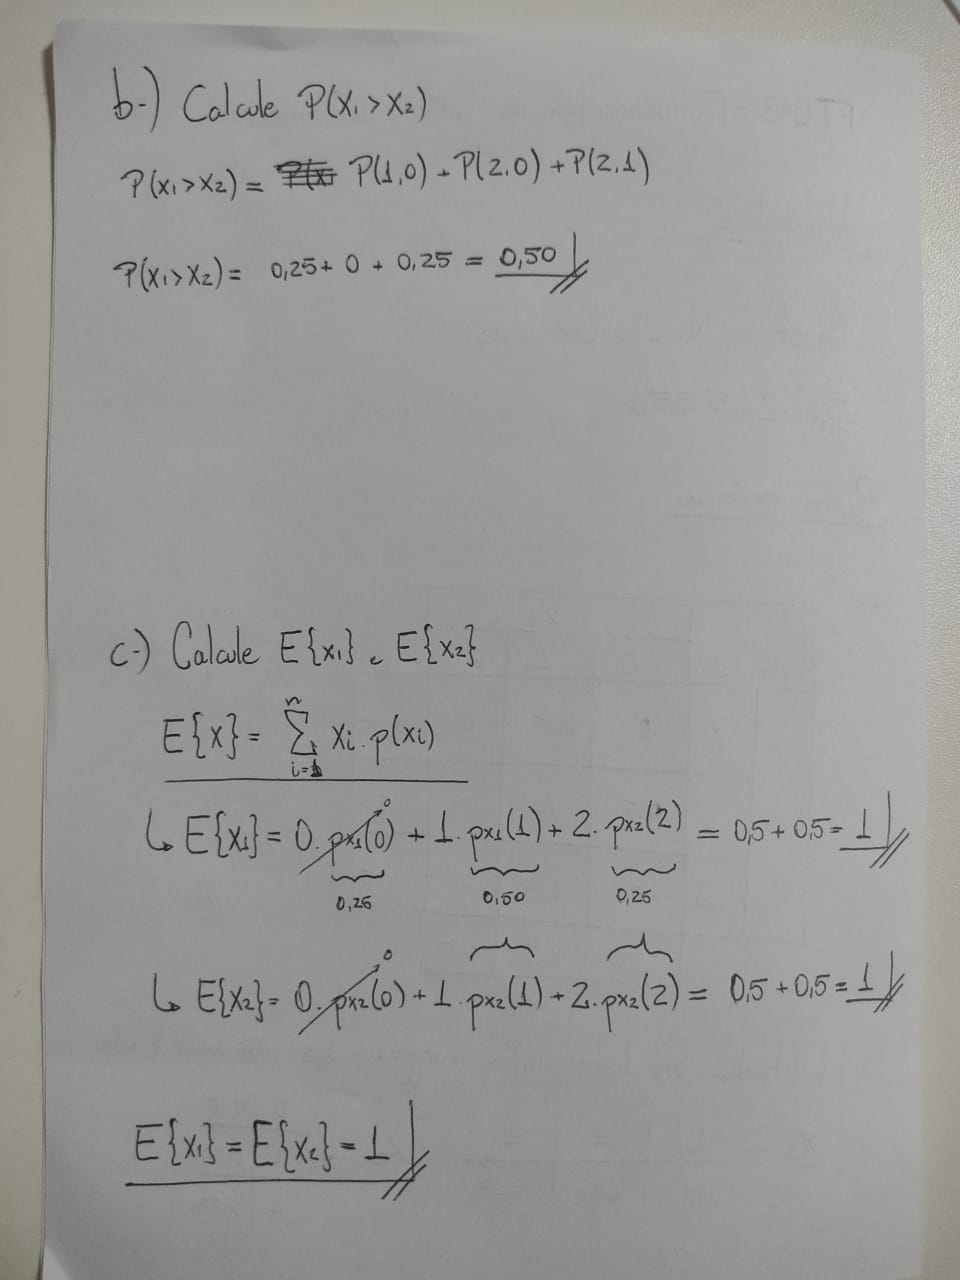 b-) Calcule P(X₁ > X₂)
P(X₁ > X₂) = P(1,0) + P(2,0) + P(2,1)
P(X₁ > X₂) = 0,25 + 0 + 0,25 = 0,50
c-) Calcule E{X₁} e E{X₂}
E{X} = Σ_{i=1}^{n} Xi . p(xi)
↳ E{X₁} = 0 . px₁(0) + 1 . px₁(1) + 2 . px₂(2) = 0,5 + 0,5 = 1
0
0,25 0,50 0,25
↳ E{X₂} = 0 . px₂(0) + 1 . px₂(1) + 2 . px₂(2) = 0,5 + 0,5 = 1
0
E{X₁} = E{X₂} = 1